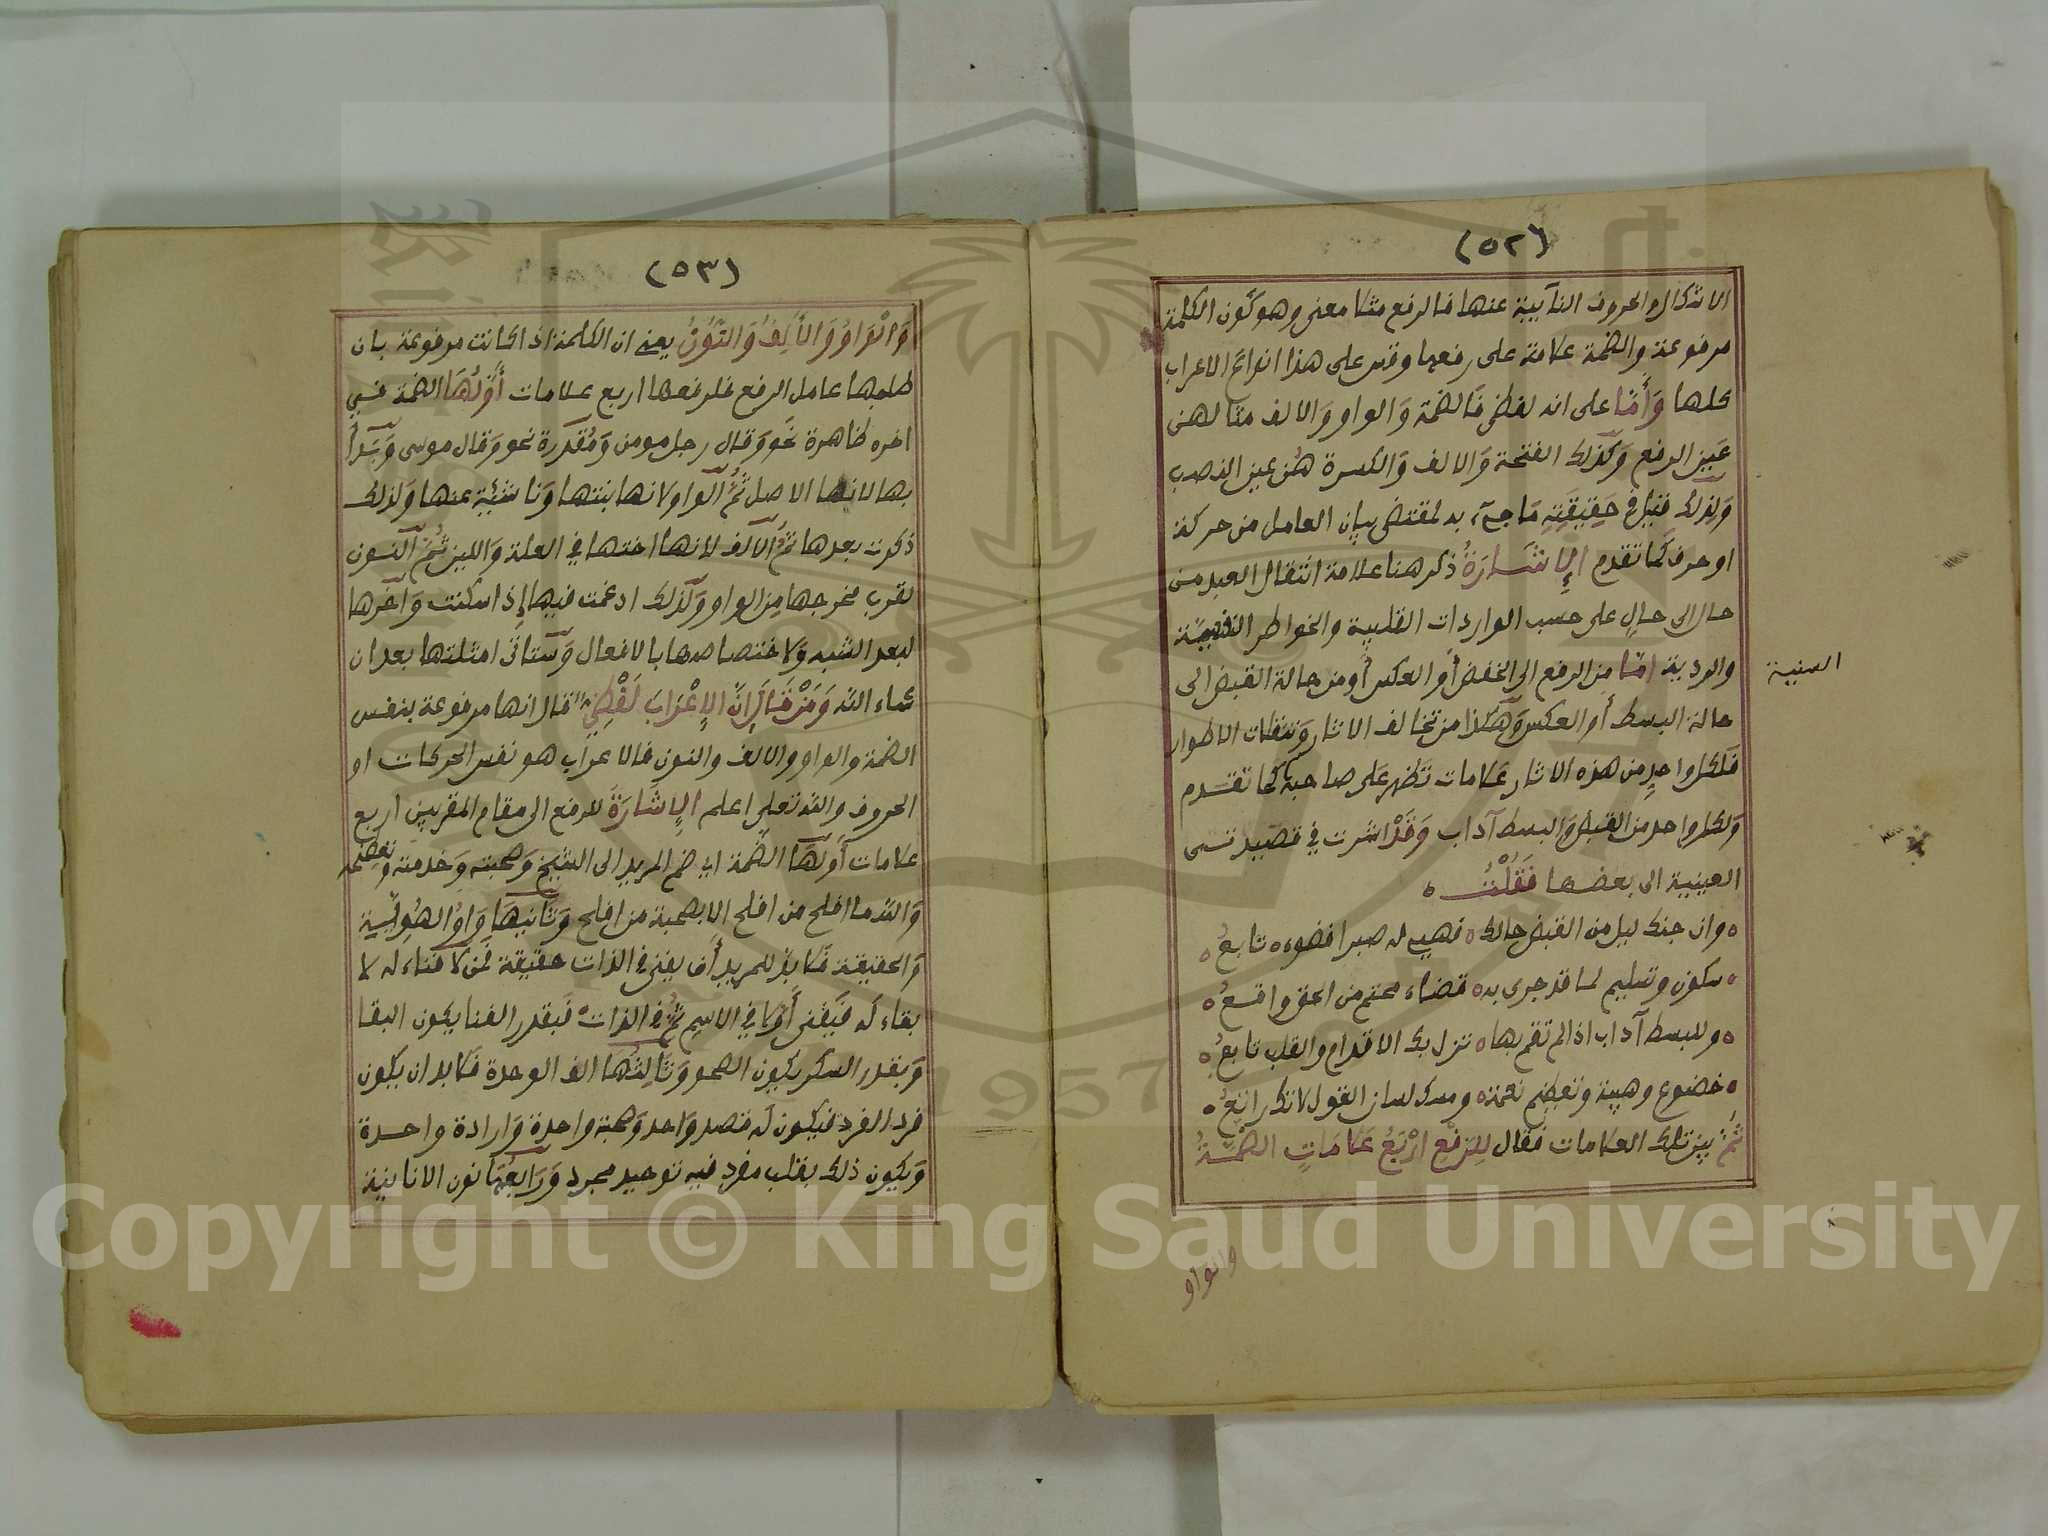 (٥٢)
الاشكال والحروف النآيبة عنها فالرفع مثلا معنى وهو كون الكلمة
مرفوعة والضمة علامة على رفعها وقس على هذا انواع الاعراب
كلها وَأَمَّا على انه لفظى فالضمة وَالواو وَالالف مثالهن
عَين الرفع وَكذلك الفتحة وَالالف وَالكسرة هُن عين النصب
وَلذلك قيل في حَقِيقَتِهِ مَا جئ به لمقتضى بيان العامل من حركة
او حرف كما تقدم الإِشَارَةُ ذكر هنا علامة انتقال العبد من
حال الى حالٍ على حسب الواردات القلبية والخواطر
السنية
والردية امَّا مِن الرفع الى الخفض أو العكس أو من حالة القبض الى
حالة البسط أو العكس وَهكذا من تخالف الاثار وَتنقلات الاطوار
فلكل واحدٍ من هذه الاثار علامات تظهر عَلى صاحبها كما تقدم
وَلكل واحد من القبض وَالبسط آداب وَقَدْ اشرت في قصيد تسمى
العينية الى بعضها فَقُلْتُ ه
ه وان جنك ليل من القبض حالك ه فهيئ له صبرا فضوءه تابعُ ه
ه سكون وتسليم لما قد جرى به ه قضاء محتم من الحق واقعُ ه
ه وللبسط آداب اذا لم تقم بها ه تزل بك الاقدام والقلب تابعُ ه
ه خضوع وهيبة وتعظيم نعمة ه ومسك لسان القول لاتك راتعُ ه
ثُمَّ بين تلك العلامات فَقال لِلرَفْعِ ارْبَعُ عَلامَاتٍ الضَّمَّةُ
والواو
(٥٣)
وَالْوَاوُ وَالأَلِفُ وَالنّوُنُ يعنى ان الكلمة اذا كانت مرفوعة بان
طلبها عامل الرفع فلرفعها اربع علامات أَوَّلُهَا الضمة في
اخره ظاهرة نحو وَقال رجل مومن وَمُقدَّرة نحو وَقال موسى وَبَدأ
بها لانها الاصل ثُمَّ الواو لانها بنتها وَناشئة عنها وَلذلك
ذكرت بعدها ثم الالف لانها اختها في العلة وَاللين ثُمَّ النون
لقرب مخرجها مِن الواو وَلذلك ادغمت فيها إِذا سكنت وَاخّرها
لبعد الشبه وَلاختصاصها بالافعال وَستاتى امثلتها بعد ان
شاء الله وَمَنْ قَالَ إِنَّ الإِعْرَابَ لَفْظِيٌّ قال انها مرفوعة بنفس
الضمة والواو والالف والنون فالاعراب هو نفس الحركات او
الحروف والله تعلى اعلم الإِشَارَةُ للرفع الى مقام المقربين اربع
علامات أَوّلها الضمّة اى ضم المريد الى الشيخ وَصحبته وَخدمته وتعظيمه
وَالله ما افلح من افلح الا بصحبة من افلح وَثَانِيهَا وَاوُ الهُوِيَّة
وَالحقيقة فَلا بدّ للمريد أَن يفنى في الذات حقيقة فمن لا فناء له لا
بقاء لَه فَيَفنى أَوّلا في الاسم ثُمَّ في الذات فَبقدر الفنا يكون البقا
وَبقدر السكر يكون الصحو وَثَالِثُهَا الف الوحدة فَلابد ان يكون
فردا لفرد فيكون لَه قصد وَاحد وَهمة واحدة وَارادة واحدة
وَيكون ذلك بقلب مفرد فيه توحيد مجرد وَرَابِعُهَا نون الانانية
Copyright © King Saud University
1957